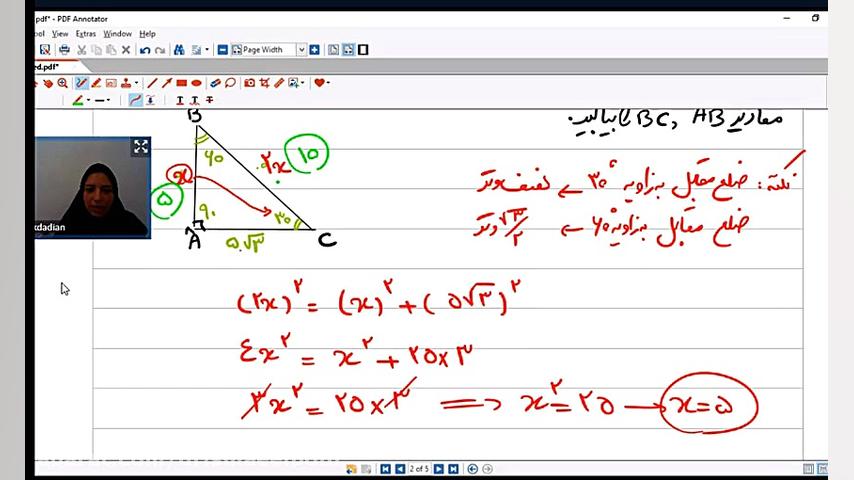 pdf* - PDF Annotator
ool View Extras Window Help
Page Width
ed.pdf*
مقادیر AB , BC را بیابید.
نکته: ضلع مقابل به زاویه ۳۰° ← نصف وتر
ضلع مقابل به زاویه ۶۰° ← √۳/۲ وتر
B
۶۰
۲x ۱۰
x
۵
۹۰
۳۰
A
۵√۳
C
kdadian
(۲x)^۲ = (x)^۲ + (۵√۳)^۲
۴x^۲ = x^۲ + ۲۵×۳
۳x^۲ = ۲۵×۳ ⟹ x^۲ = ۲۵ → x = ۵
2 of 5